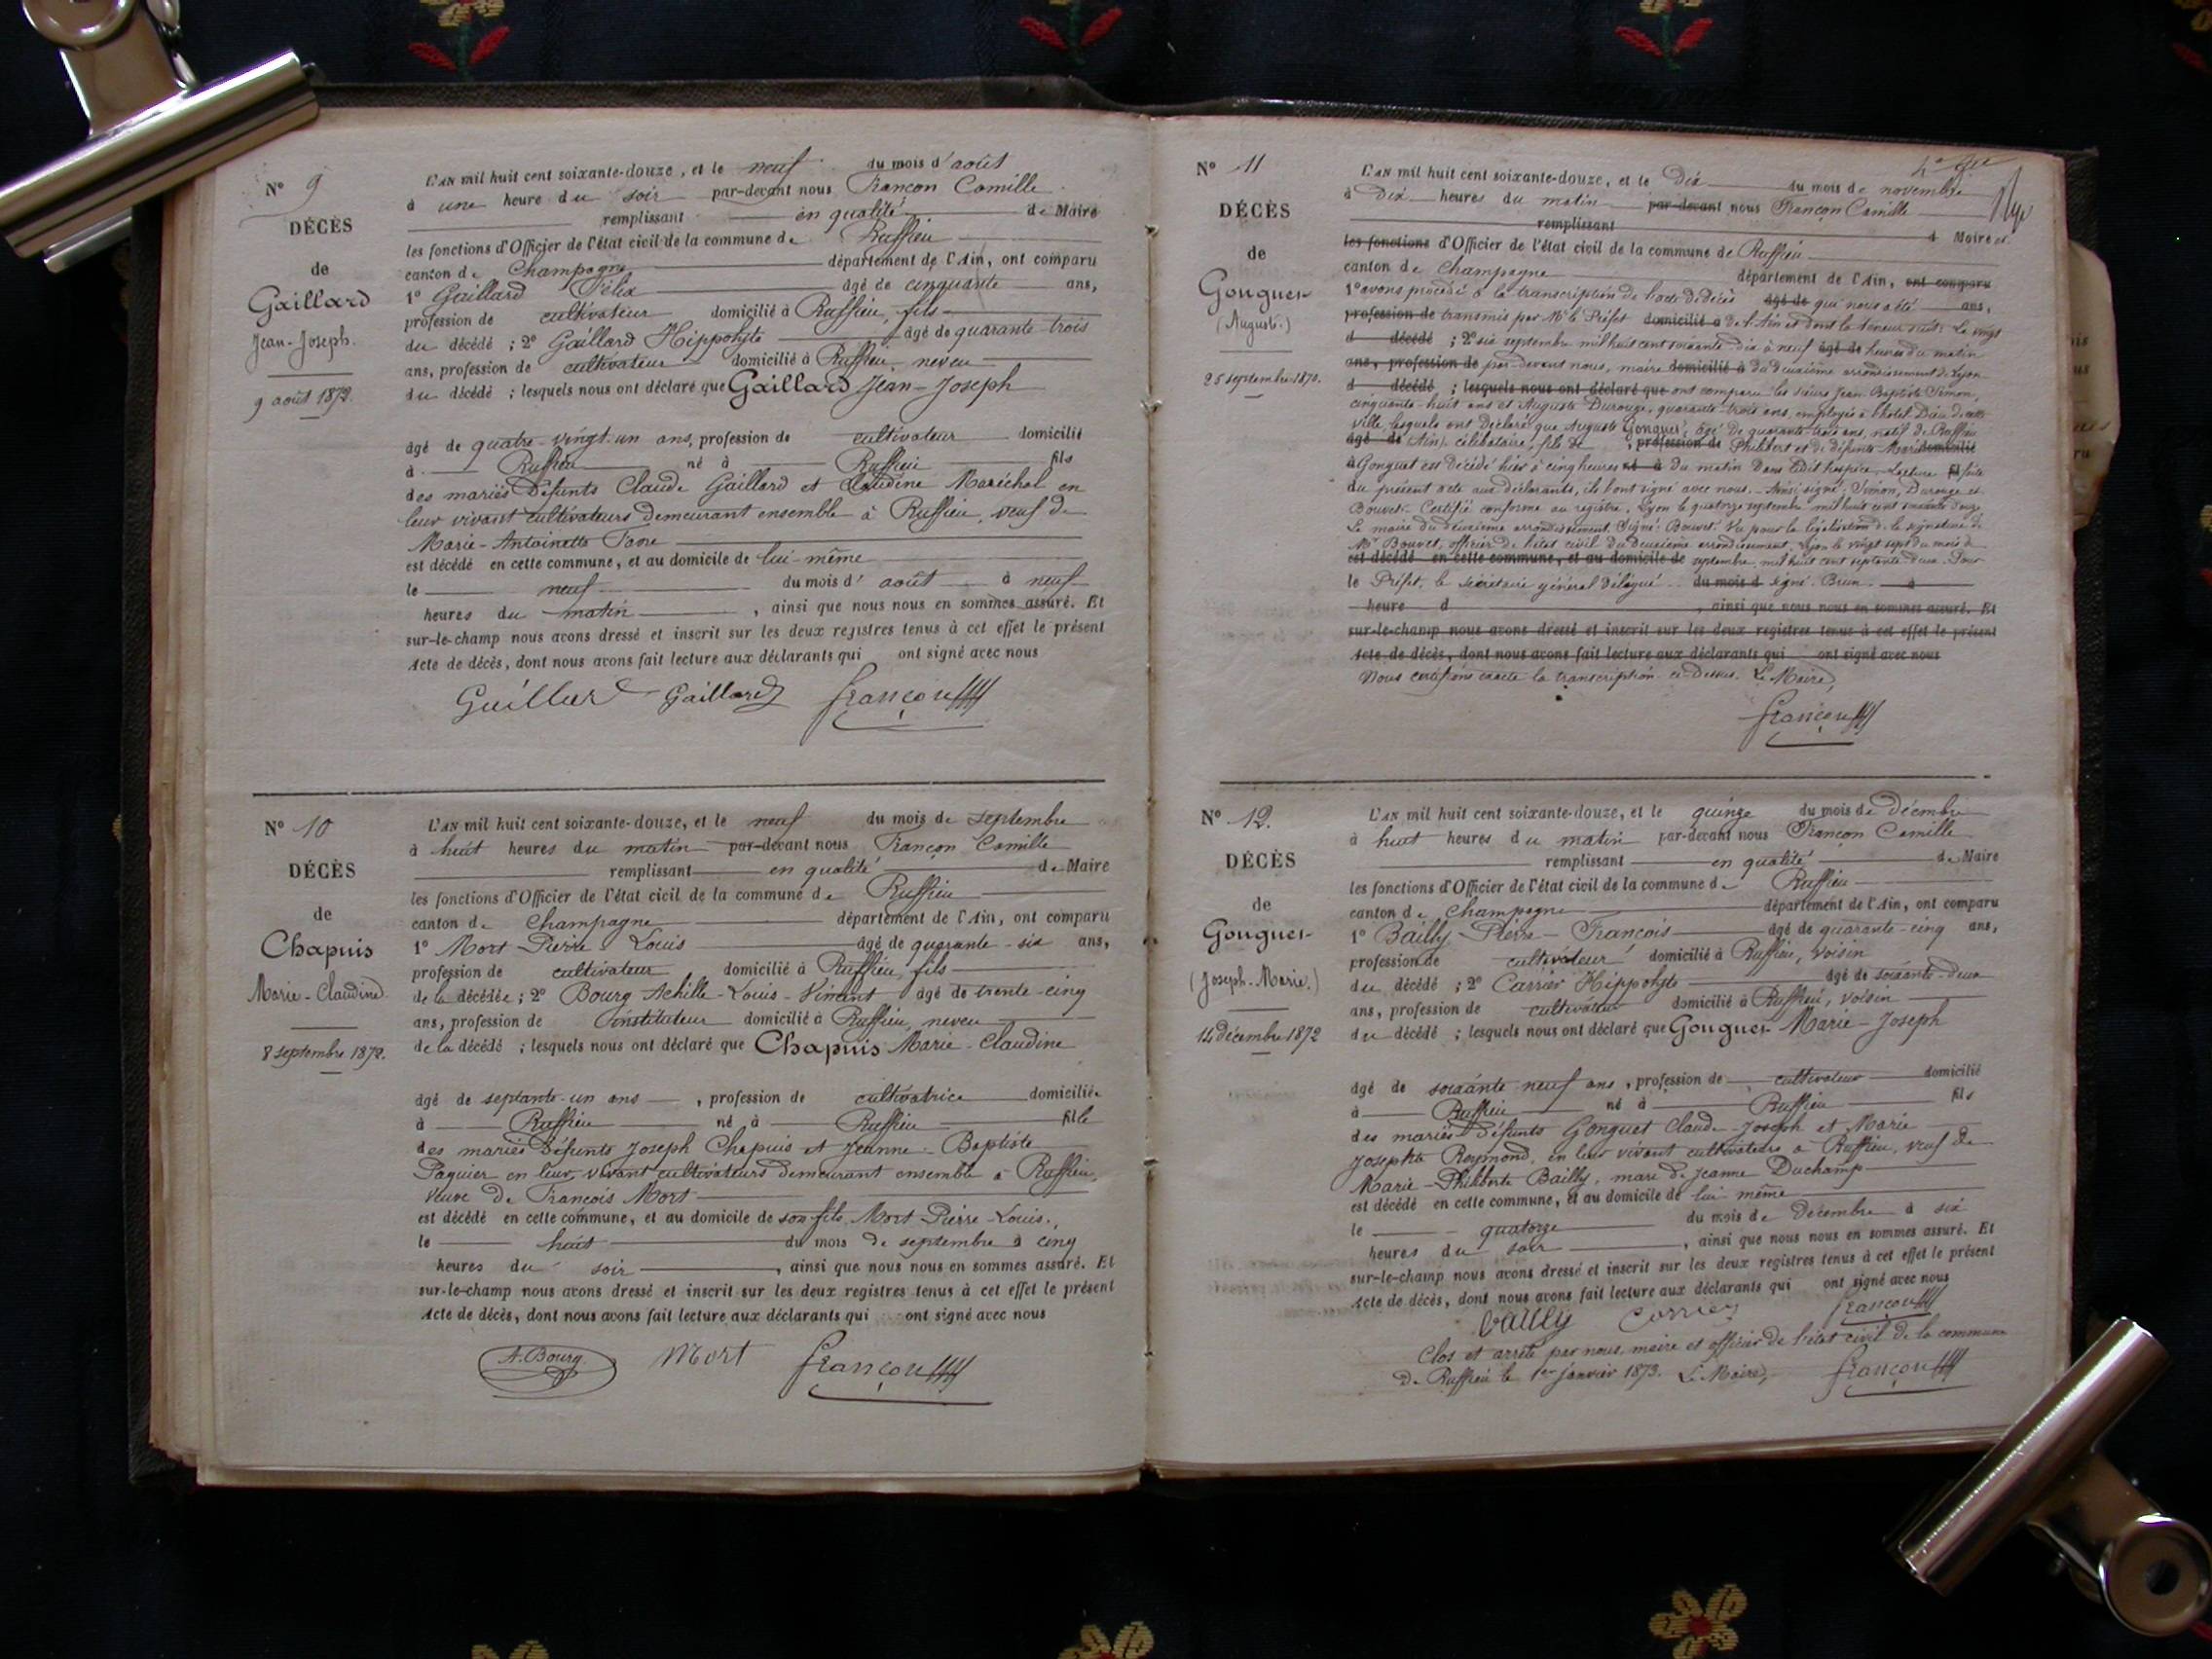 N° 9
DÉCÈS
de
Gaillard
Jean-Joseph.
9 août 1872.
L'AN mil huit cent soixante-douze, et le neuf du mois d'août
à une heure du soir par-devant nous Françon Camille
remplissant en qualité de Maire
les fonctions d'Officier de l'état civil de la commune de Ruffieu
canton de Champagne département de l'Ain, ont comparu
1° Gaillard Félix âgé de cinquante ans,
profession de cultivateur domicilié à Ruffieu, fils
du décédé ; 2° Gaillard Hippolyte âgé de quarante-trois
ans, profession de cultivateur domicilié à Ruffieu, neveu
du décédé ; lesquels nous ont déclaré que Gaillard Jean-Joseph
âgé de quatre-vingt-un ans, profession de cultivateur domicilié
à Ruffieu né à Ruffieu fils
des mariés défunts Claude Gaillard et Claudine Maréchal en
leur vivant cultivateurs demeurant ensemble à Ruffieu, veuf de
Marie-Antoinette
est décédé en cette commune, et au domicile de lui-même
le neuf du mois d'août à neuf
heures du matin, ainsi que nous nous en sommes assuré. Et
sur-le-champ nous avons dressé et inscrit sur les deux registres tenus à cet effet le présent
Acte de décès, dont nous avons fait lecture aux déclarants qui ont signé avec nous
Gaillard Gaillard françon
N° 10
DÉCÈS
de
Chapuis
Marie-Claudine
8 septembre 1872.
L'AN mil huit cent soixante-douze, et le neuf du mois de septembre
à huit heures du matin par-devant nous Françon Camille
remplissant en qualité de Maire
les fonctions d'Officier de l'état civil de la commune de Ruffieu
canton de Champagne département de l'Ain, ont comparu
1° Mort Pierre Louis âgé de quarante-six ans,
profession de cultivateur domicilié à Ruffieu, fils
de la décédée ; 2° Bourg Achille-Louis-Vincent âgé de trente-cinq
ans, profession de instituteur domicilié à Ruffieu, neveu
de la décédé ; lesquels nous ont déclaré que Chapuis Marie-Claudine
âgé de septante-un ans, profession de cultivatrice domiciliée
à Ruffieu né à Ruffieu fille
des mariés défunts Joseph Chapuis et Jeanne-Baptiste
Paquier en leur vivant cultivateurs demeurant ensemble à Ruffieu,
veuve de François Mort
est décédé en cette commune, et au domicile de son fils Mort Pierre-Louis,
le huit du mois de septembre à cinq
heures du soir, ainsi que nous nous en sommes assuré. Et
sur-le-champ nous avons dressé et inscrit sur les deux registres tenus à cet effet le présent
Acte de décès, dont nous avons fait lecture aux déclarants qui ont signé avec nous
A. Bourg Mort françon
N° 11
DÉCÈS
de
Gonguet
(Auguste.)
25 septembre 1870.
L'AN mil huit cent soixante-douze, et le Dix du mois de novembre
à Dix heures du matin par-devant nous Françon Camille
remplissant d Maire et
les fonctions d'Officier de l'état civil de la commune de Ruffieu
canton de Champagne département de l'Ain, ont comparu
1° avons procédé à la transcription de l'acte de décès âgé de qui nous a été ans,
profession de transmis par Mr le Préfet domicilié à de l'Ain et dont la teneur suit : Le vingt
d décédé ; 2° six septembre mil huit cent soixante dix à neuf âgé de heures du matin
ans, profession de par-devant nous, maire domicilié à du deuxième arrondissement de Lyon
d décédé ; lesquels nous ont déclaré que ont comparu les sieurs Jean Baptiste Simon,
cinquante-huit ans et Auguste Durouge, quarante-trois ans, employés à l'hôtel Dieu de cette
ville, lesquels ont déclaré que Auguste Gonguet, âgé de quarante-trois ans, natif de Ruffieu
âgé de (Ain), célibataire, fils de profession de Philibert et de défunte Marie domicilié
à Gonguet est décédé hier à cinq heures né à du matin dans ledit hospice. Lecture fils faite
du présent acte aux déclarants, ils l'ont signé avec nous. Ainsi signé : Simon, Durouge et
Bouvet. Certifié conforme au registre, Lyon le quatorze septembre mil huit cent soixante douze
Le maire du deuxième arrondissement. Signé : Bouvet. Vu pour la législation de la signature de
Mr Bouvet, officier de l'état civil du deuxième arrondissement, Lyon le vingt sept du mois de
est décédé en cette commune, et au domicile de septembre mil huit cent septante deux. Pour
le Préfet, le secrétaire général délégué du mois d signé : Brun. à
heure d, ainsi que nous nous en sommes assuré. Et
sur-le-champ nous avons dressé et inscrit sur les deux registres tenus à cet effet le présent
Acte de décès, dont nous avons fait lecture aux déclarants qui ont signé avec nous
Nous certifions exacte la transcription ci-dessus. Le Maire,
françon
N° 12.
DÉCÈS
de
Gonguet
(Joseph-Marie.)
14 décembre 1872
L'AN mil huit cent soixante-douze, et le quinze du mois de décembre
à huit heures du matin par-devant nous Françon Camille
remplissant en qualité de Maire
les fonctions d'Officier de l'état civil de la commune de Ruffieu
canton de Champagne département de l'Ain, ont comparu
1° Bailly Pierre-François âgé de quarante-cinq ans,
profession de cultivateur domicilié à Ruffieu, voisin
du décédé ; 2° Carrier Hippolyte âgé de soixante-deux
ans, profession de cultivateur domicilié à Ruffieu, voisin
du décédé ; lesquels nous ont déclaré que Gonguet Marie-Joseph
âgé de soixante neuf ans, profession de cultivateur domicilié
à Ruffieu né à Ruffieu fils
des mariés défunts Gonguet Claude-Joseph et Marie
Josephte Reymond, en leur vivant cultivateurs à Ruffieu, veuf de
Marie-Philiberte Bailly, mari de Jeanne Duchamp
est décédé en cette commune, et au domicile de lui même
le quatorze du mois de décembre à six
heures du soir, ainsi que nous nous en sommes assuré. Et
sur-le-champ nous avons dressé et inscrit sur les deux registres tenus à cet effet le présent
Acte de décès, dont nous avons fait lecture aux déclarants qui ont signé avec nous
bailly Carrier françon
Clos et arrêté par nous, maire et officier de l'état civil de la commune
de Ruffieu le 1er janvier 1873. Le Maire, françon